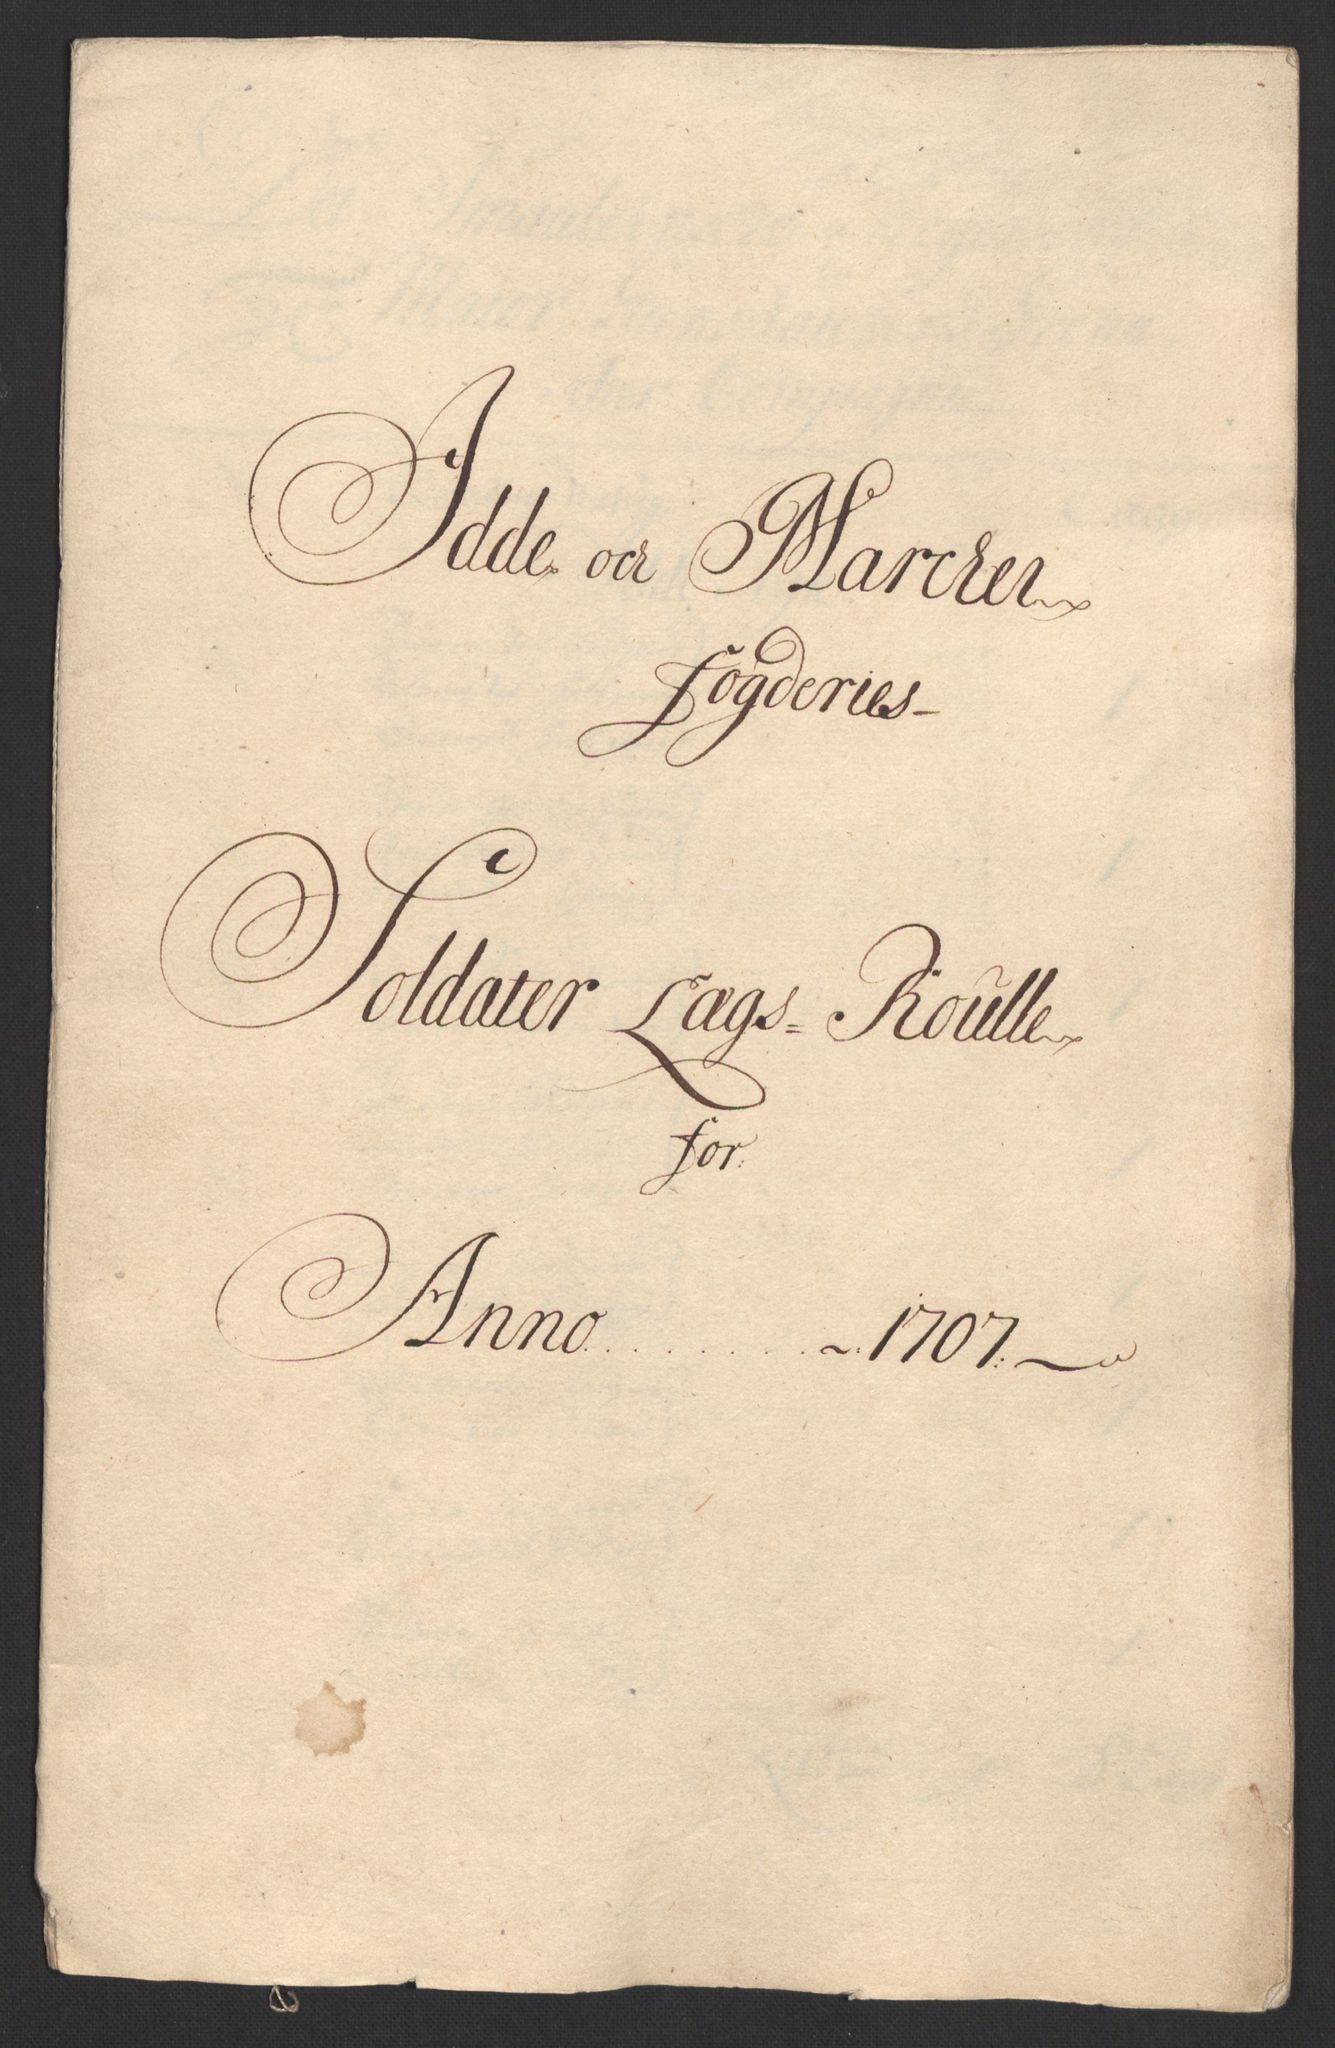 Idde och Marcher
fogderies-
Soldater Lægs= Roulle
for
Anno ........ 1707.